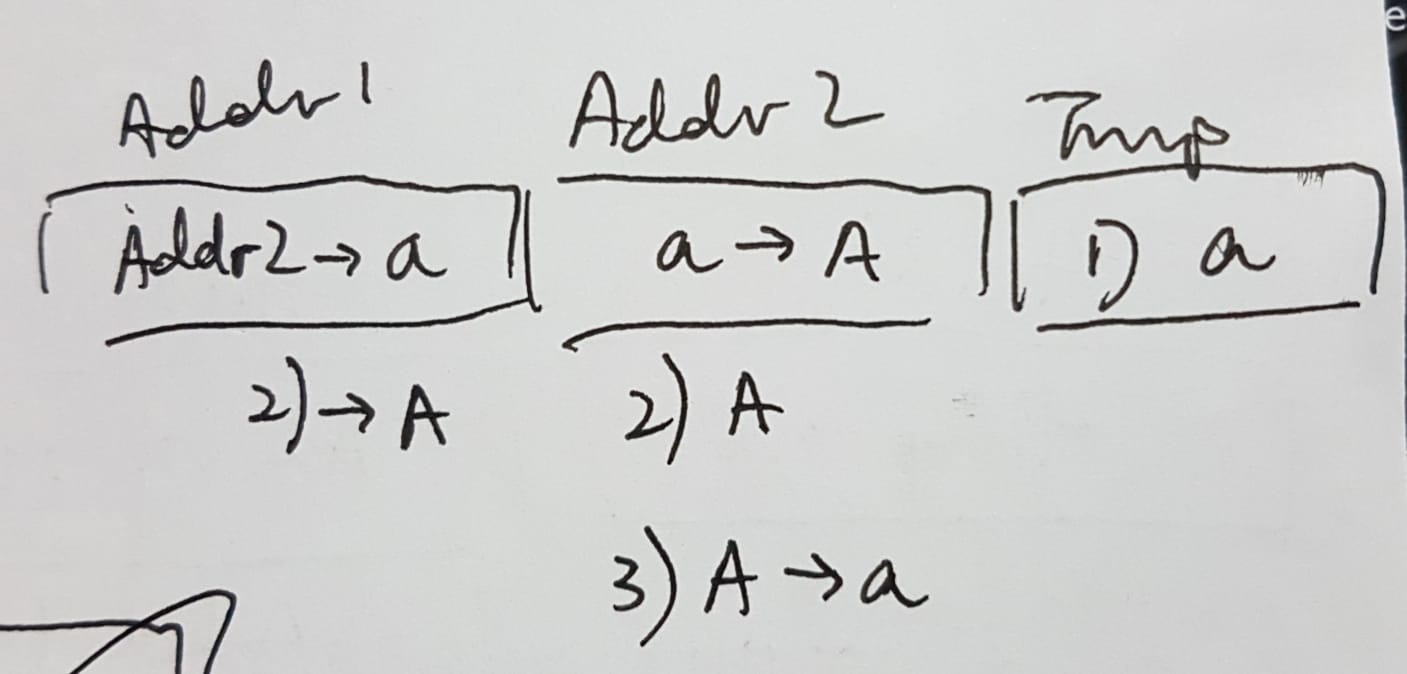 Addr 1 Addr 2 Tmp
Addr2 → a a → A 1) a
2) → A 2) A
3) A → a
e